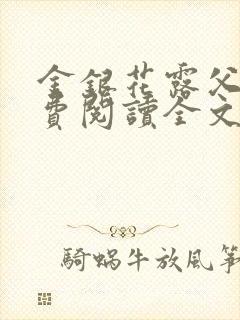 金銀花露父
費閱讀全文
騎蝸牛放風箏